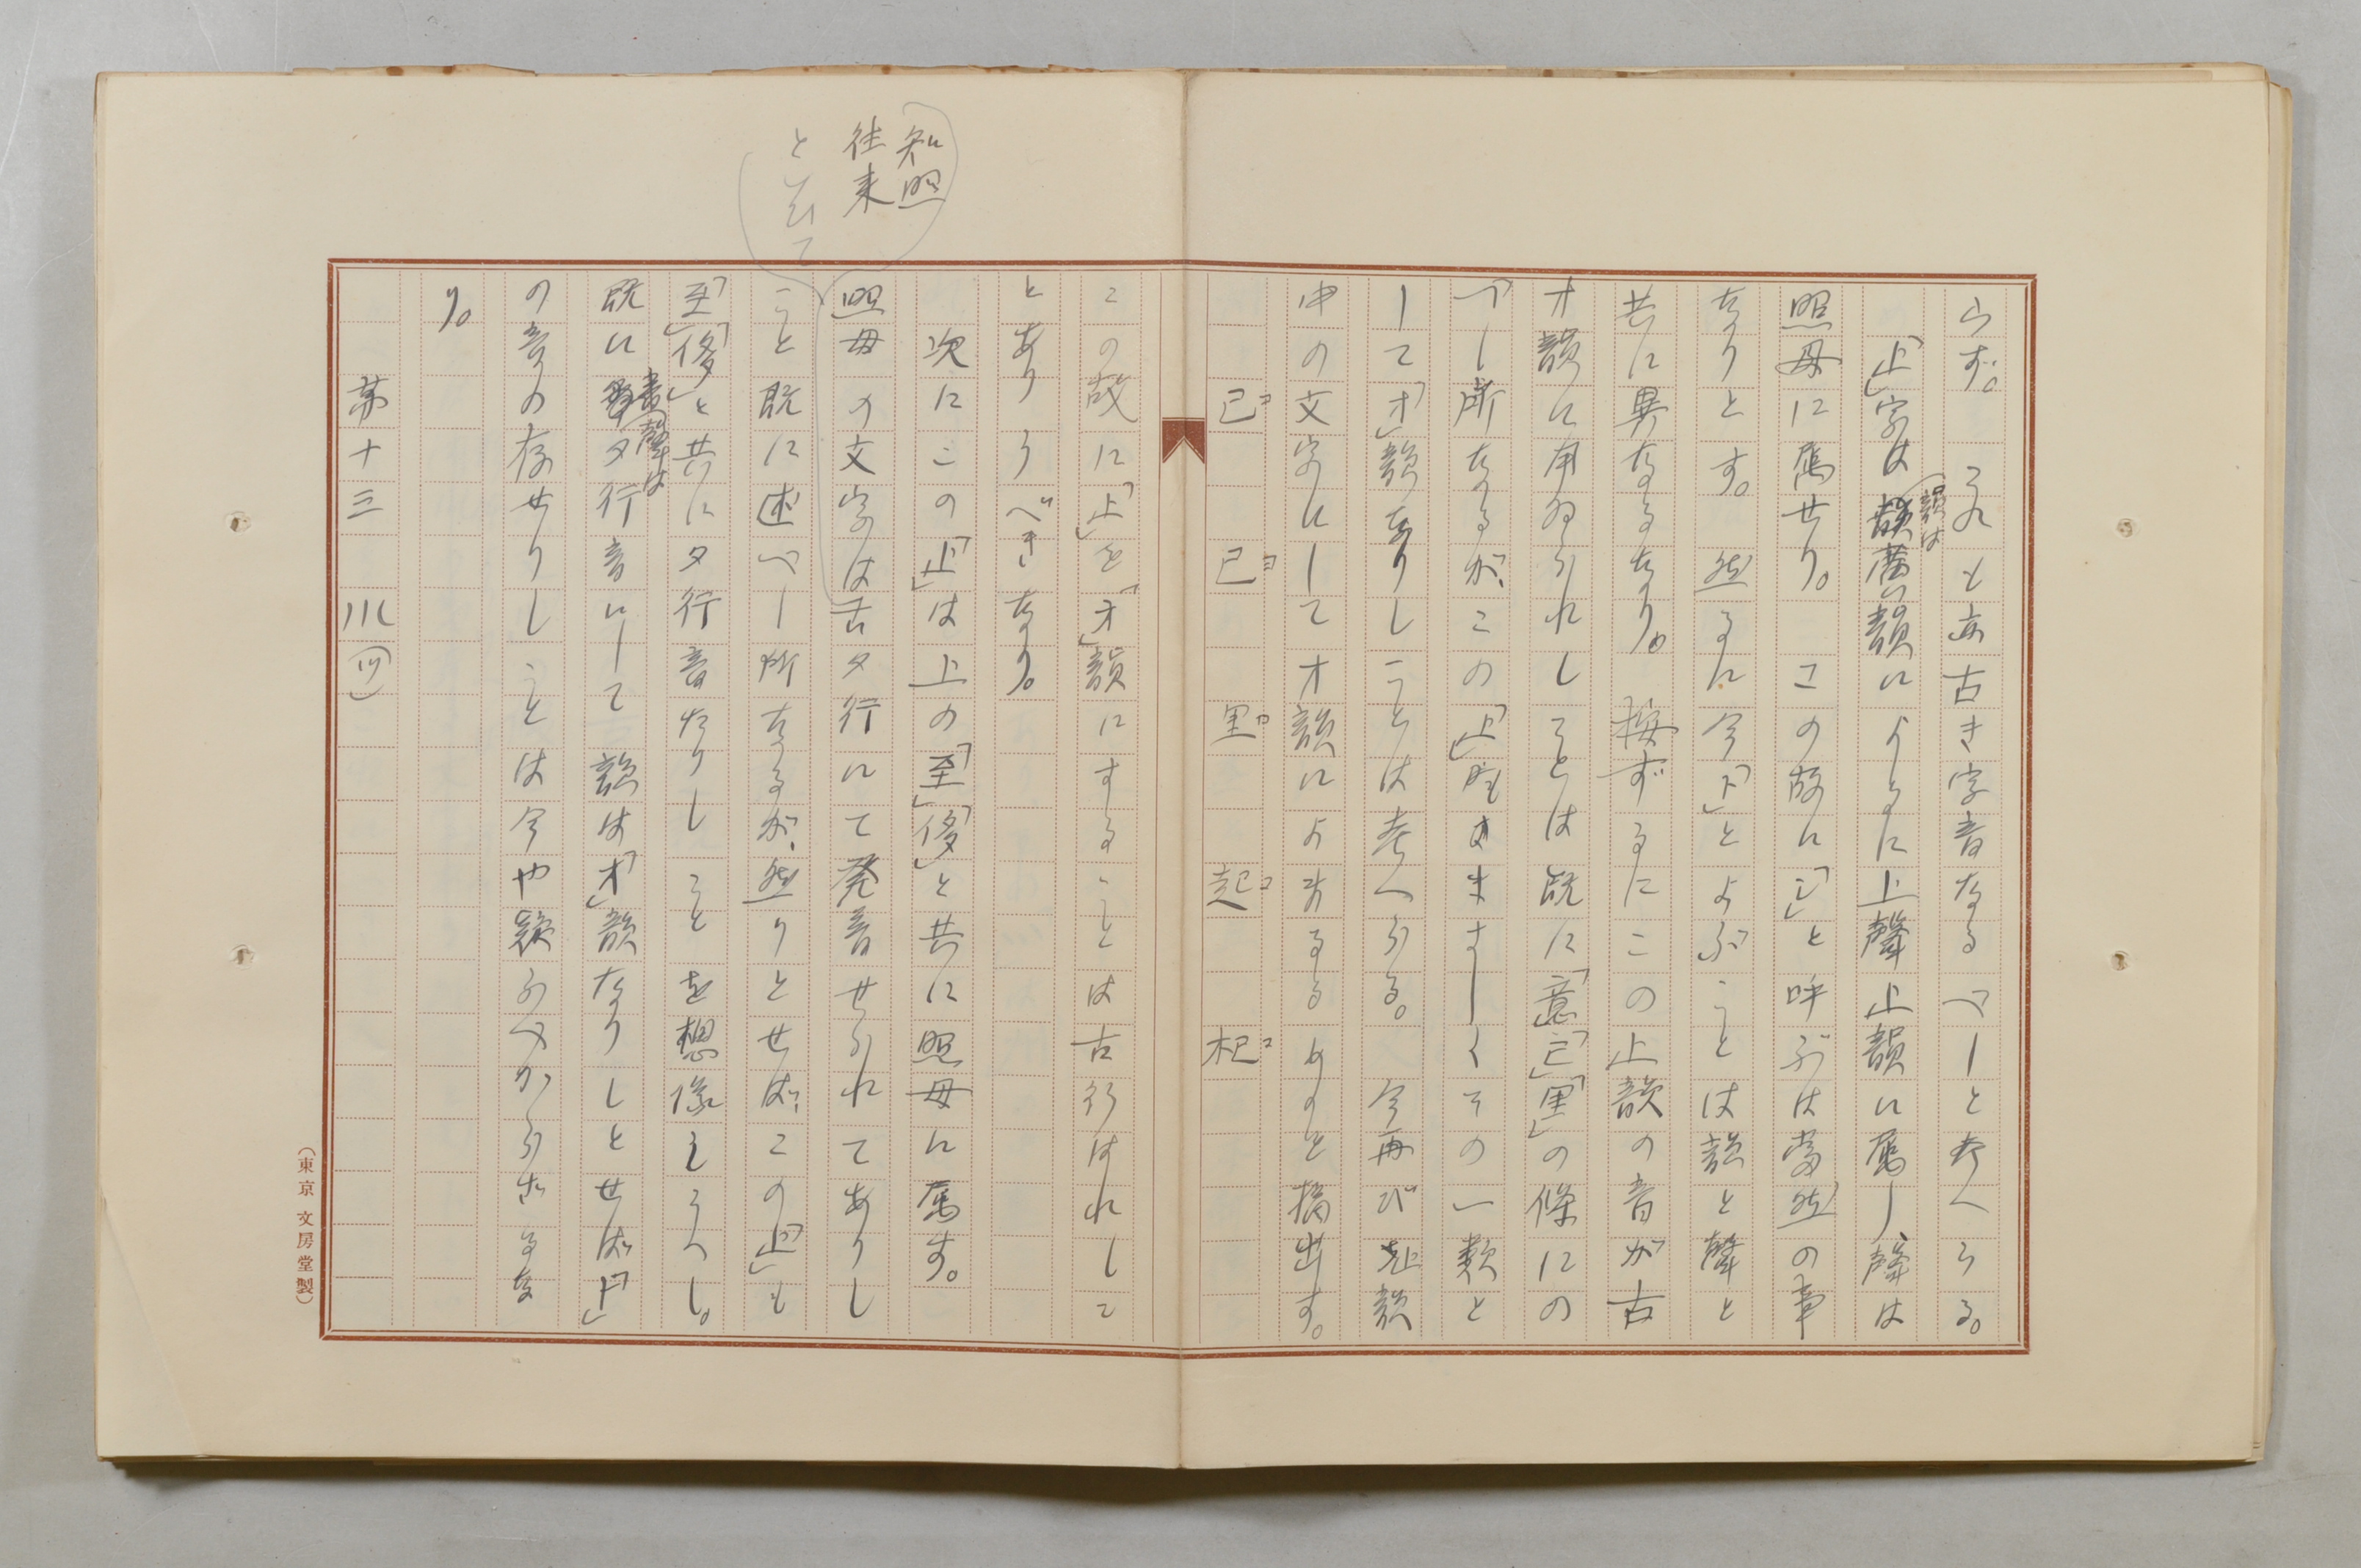 らず。 これも亦古き字音なるべしと考へらる。
「止」字は韻は廣韻によるに上聲止韻に属し、聲は
照母に属せり。 この故に「シ」と呼ぶは當然の事
なりとす。 然るに今「ト」とよぶことは韻と聲と
共に異なるなり。 按ずるにこの止韻の音が古
オ韻に用ゐられしことは既に「意」「己」「里」の條にの
べし所なるが、この「止」もまさしくその一類と
して「オ」韻なりしことは考へらる。 今再び止韻
中の文字にしてオ韻によまるるものを摘出す。
己コ 已ヨ 里ロ 起コ 杞コ
この故に「止」を「オ」韻にすることは古行はれしこ
とありうべきなり。
次にこの「止」は上の「至」「侈」と共に照母に属す。
照母の文字は古タ行にて発音せられてありし
こと既に述べし所なるが、然りとせば、この「止」も
「至」「侈」と共にタ行音たりしことを想像しうべし。
既に聲はタ行音にして韻は「オ」韻なりしとせば「ト」
の音の存せりしことは今や疑ふべからざるな
り。
第十三 川(ツ)
知照
往来
と云ひて
(東京 文房堂製)